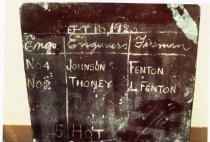 Engs. Engineers Fireman
No 4 Johnson Fenton
No 2 Thoney L. Fenton
5 Hot